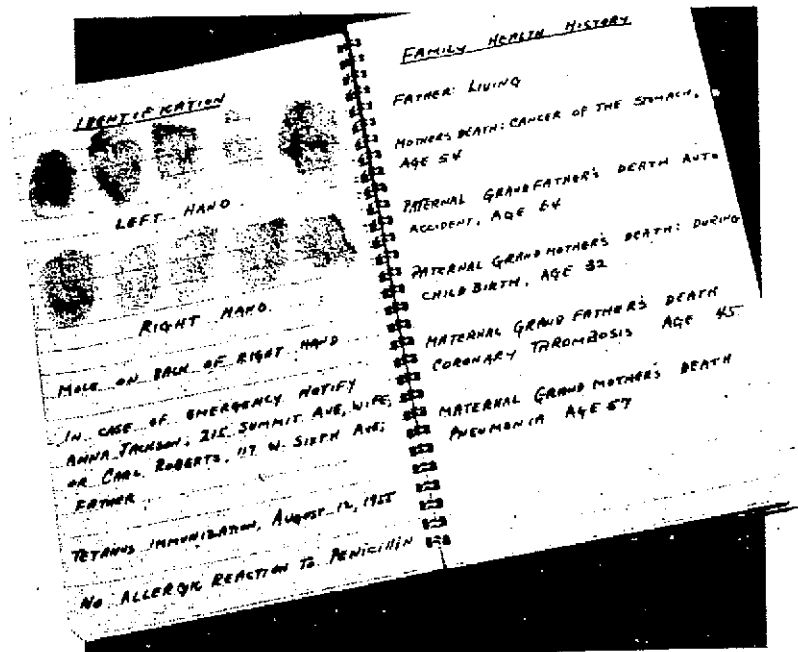 IDENTIFICATION
LEFT HAND
RIGHT HAND
MOLE ON BACK OF RIGHT HAND
IN CASE OF EMERGENCY NOTIFY
ANNA JACKSON, 215 SUMMIT AVE, WIFE;
OR CARL ROBERTS, 117 W. SIXTH AVE;
FATHER
TETANUS IMMUNIZATION, AUGUST 12, 1955
NO ALLERGIC REACTION TO PENICILLIN
FAMILY HEALTH HISTORY
FATHER: LIVING
MOTHER'S DEATH: CANCER OF THE STOMACH,
AGE 54
PATERNAL GRANDFATHER'S DEATH AUTO
ACCIDENT, AGE 64
PATERNAL GRANDMOTHER'S DEATH: DURING
CHILD BIRTH, AGE 32
MATERNAL GRAND FATHER'S DEATH
CORONARY THROMBOSIS AGE 45
MATERNAL GRAND MOTHER'S DEATH
PNEUMONIA AGE 57